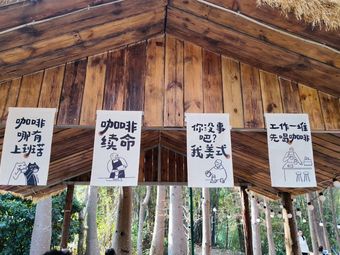 咖啡
哪有
上班苦
咖啡
续命
你没事
吧?
我美式
工作一堆
先喝咖啡